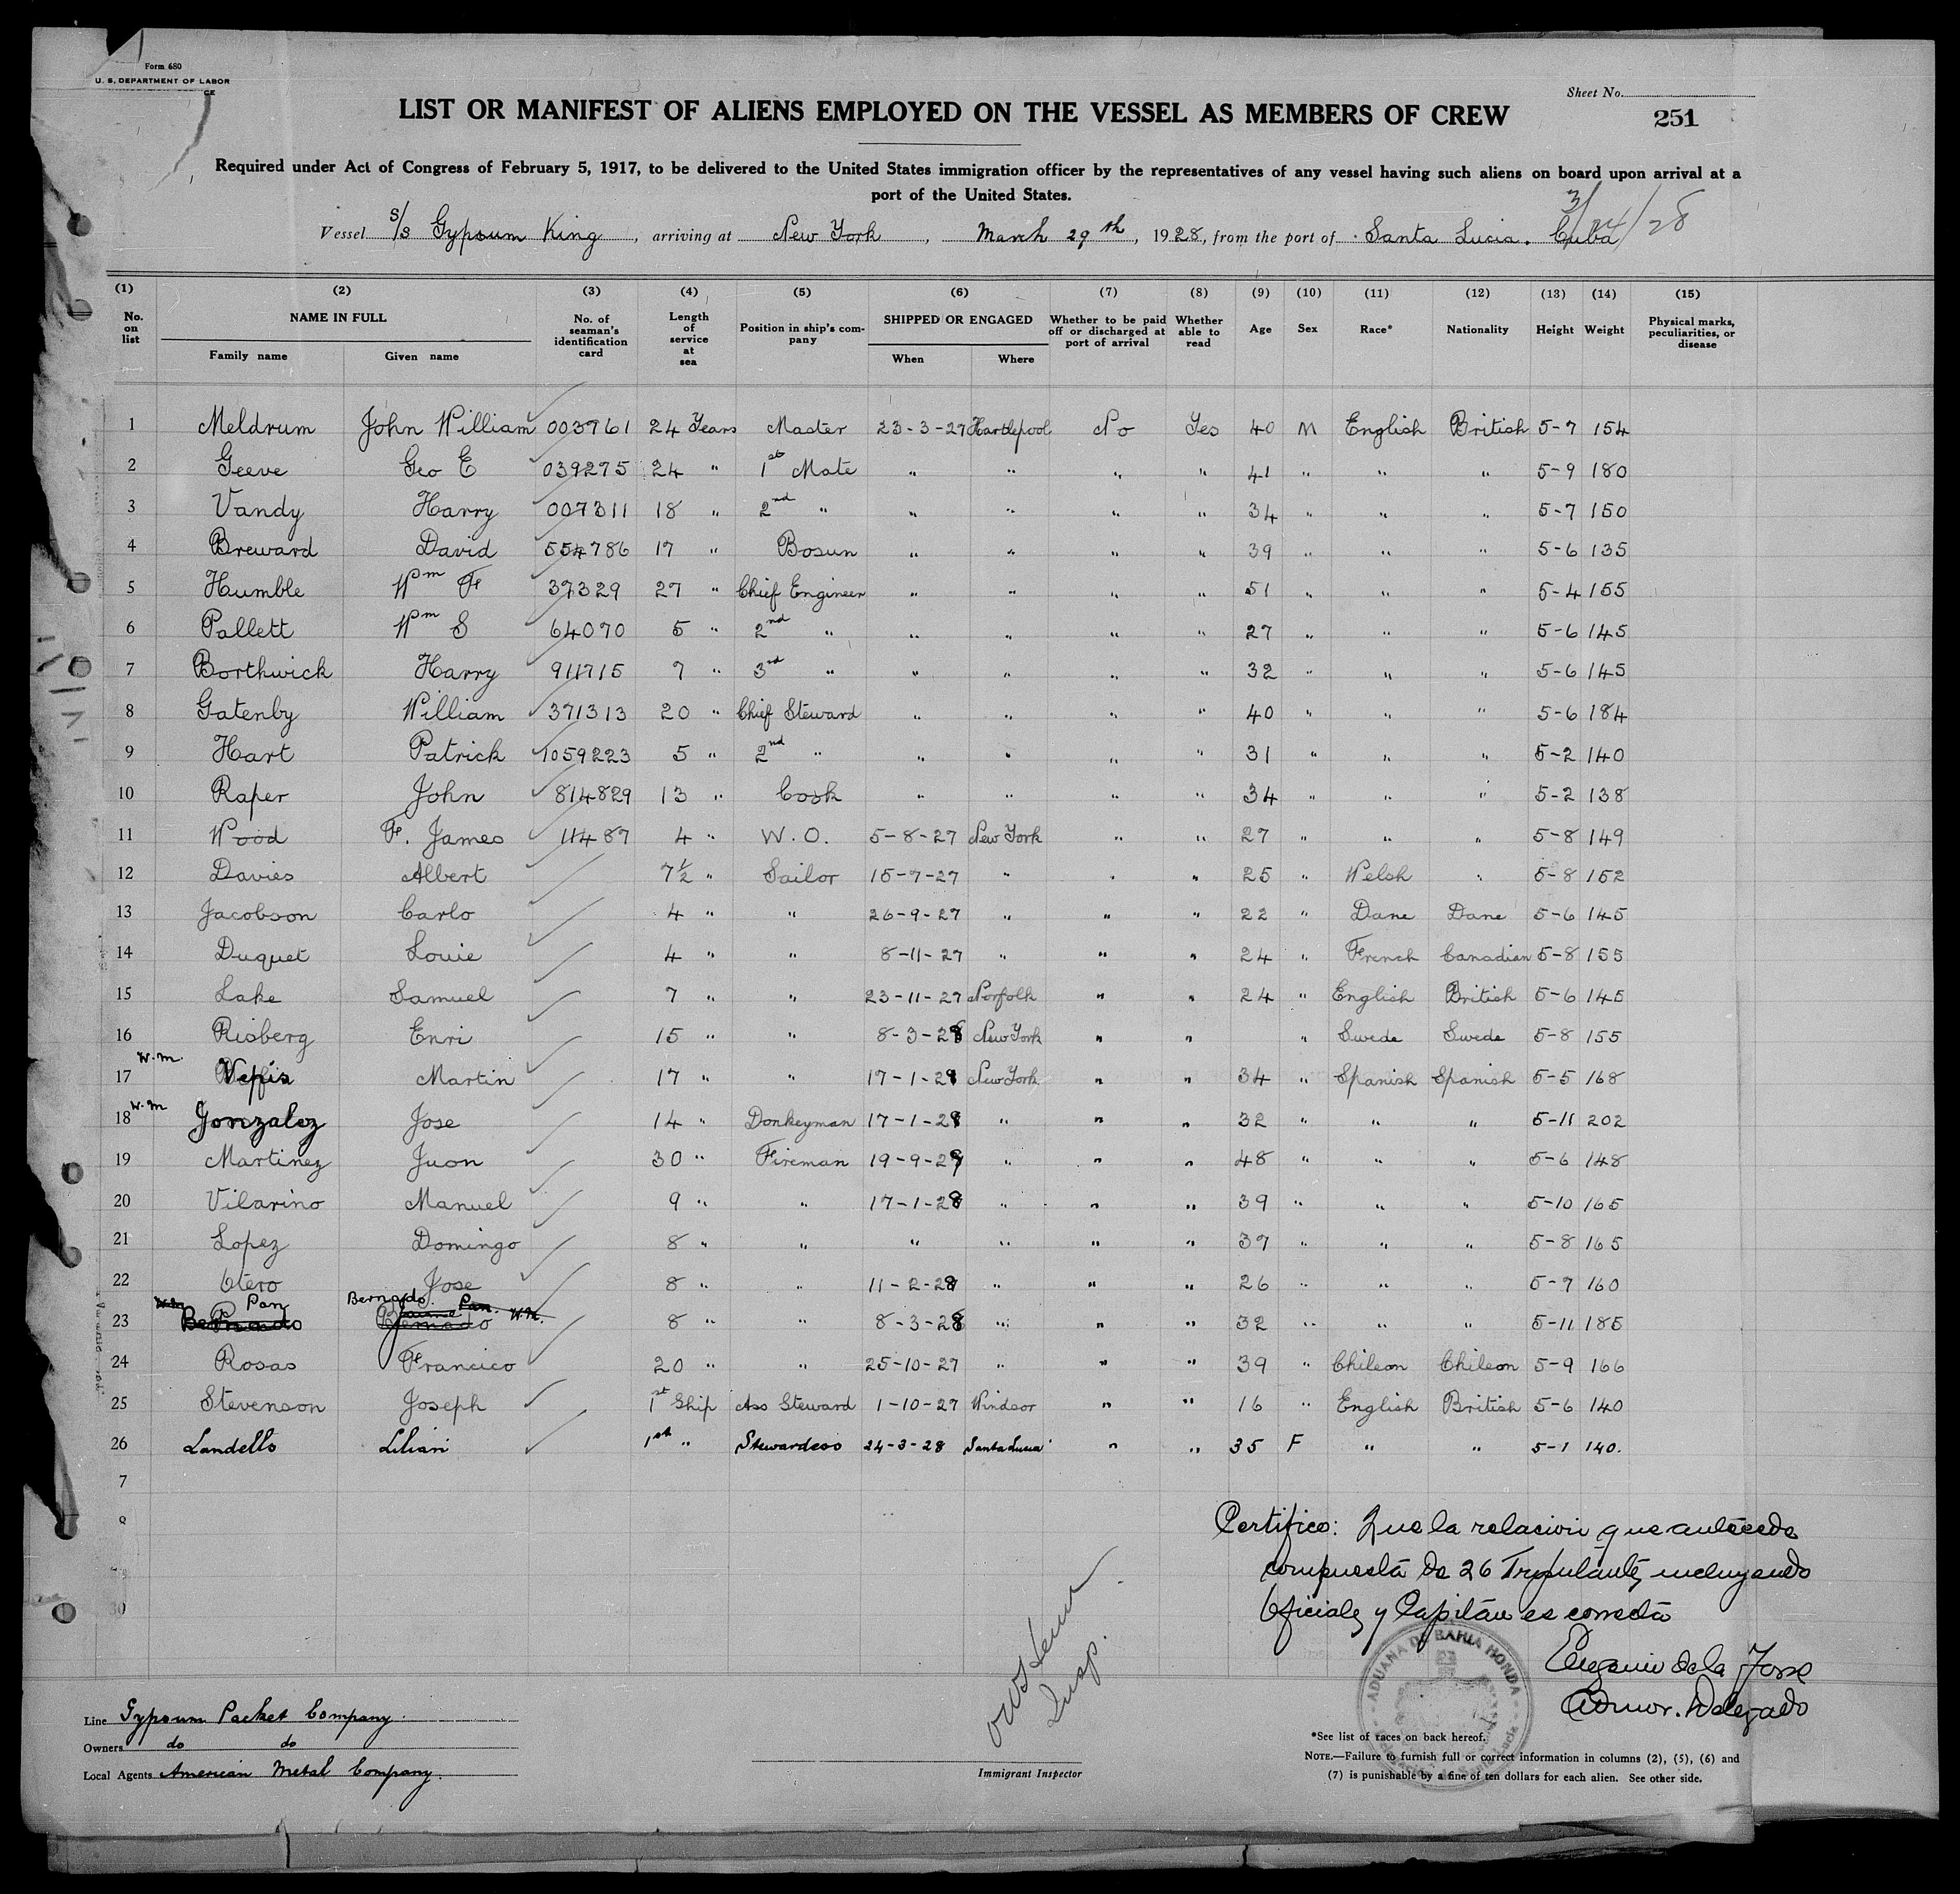 Form 680
U. S. DEPARTMENT OF LABOR
CE
Sheet No.
LIST OR MANIFEST OF ALIENS EMPLOYED ON THE VESSEL AS MEMBERS OF CREW
251
Required under Act of Congress of February 5, 1917, to be delivered to the United States immigration officer by the representatives of any vessel having such aliens on board upon arrival at a
port of the United States.
3/24/28
Vessel S/S Gypsum King, arriving at New York, March 29th, 1928, from the port of Santa Lucia. Cuba
(1) (2) (3) (4) (5) (6) (7) (8) (9) (10) (11) (12) (13) (14) (15)
No. on list NAME IN FULL Family name Given name No. of seaman's identification card Length of service at sea Position in ship's company SHIPPED OR ENGAGED When Where Whether to be paid off or discharged at port of arrival Whether able to read Age Sex Race* Nationality Height Weight Physical marks, peculiarities, or disease
1 Meldrum John William 003761 24 Years Master 23-3-27 Hartlepool No Yes 40 M English British 5-7 154
2 Geeve Geo E 039275 24 " 1st Mate " " " " 41 " " " 5-9 180
3 Vandy Harry 007311 18 " 2nd " " " " " 34 " " " 5-7 150
4 Breward David 554786 17 " Bosun " " " " 39 " " " 5-6 135
5 Humble Wm F 37329 27 " Chief Engineer " " " " 51 " " " 5-4 155
6 Pallett Wm S 64070 5 " 2nd " " " " " 27 " " " 5-6 145
7 Borthwick Harry 911715 7 " 3rd " " " " " 32 " " " 5-6 145
8 Gatenby William 371313 20 " Chief Steward " " " " 40 " " " 5-6 184
9 Hart Patrick 1059223 5 " 2nd " " " " " 31 " " " 5-2 140
10 Raper John 814829 13 " Cook " " " " 34 " " " 5-2 138
11 Wood F. James 11487 4 " W.O. 5-8-27 New York " " 27 " " " 5-8 149
12 Davies Albert 7½ " Sailor 15-7-27 " " " 25 " Welsh " 5-8 152
13 Jacobson Carlo 4 " " 26-9-27 " " " 22 " Dane Dane 5-6 145
14 Duquet Louie 4 " " 8-11-27 " " " 24 " French Canadian 5-8 155
15 Lake Samuel 7 " " 23-11-27 Norfolk " " 24 " English British 5-6 145
16 Risberg Enri 15 " " 8-3-28 New York " " " Swede Swede 5-8 155
W.M.
17 Martin 17 " " 17-1-28 New York " " 34 " Spanish Spanish 5-5 168
W.M
18 Gonzalez Jose 14 " Donkeyman 17-1-28 " " " 32 " " " 5-11 202
19 Martinez Juon 30 " Fireman 19-9-27 " " " 48 " " " 5-6 148
20 Vilarino Manuel 9 " " 17-1-28 " " " 39 " " " 5-10 165
21 Lopez Domingo 8 " " " " " " 37 " " " 5-8 165
22 Otero Jose 8 " " 11-2-28 " " " 26 " " " 5-7 160
Pan Bernardo Pan. W.M.
23 Bernado 8 " " 8-3-28 " " " 32 " " " 5-11 185
24 Rosas Francico 20 " " 25-10-27 " " " 39 " Chileon Chileon 5-9 166
25 Stevenson Joseph 1st Ship Ass Steward 1-10-27 Windsor " " 16 " English British 5-6 140
26 Landells Lilian 1st " Stewardess 24-3-28 Santa Lucia " " 35 F " " 5-1 140.
7
30
Certifico: Que la relacion que antecede
compuesta de 26 Tripulantes, incluyendo
Oficiales y Capitan es correcta
Admor. Delegado
ADUANA DE BAHIA HONDA
Insp.
Line Gypsum Packet Company.
Owners do do
Local Agents American Metal Company.
Immigrant Inspector
*See list of races on back hereof.
NOTE.—Failure to furnish full or correct information in columns (2), (5), (6) and
(7) is punishable by a fine of ten dollars for each alien. See other side.